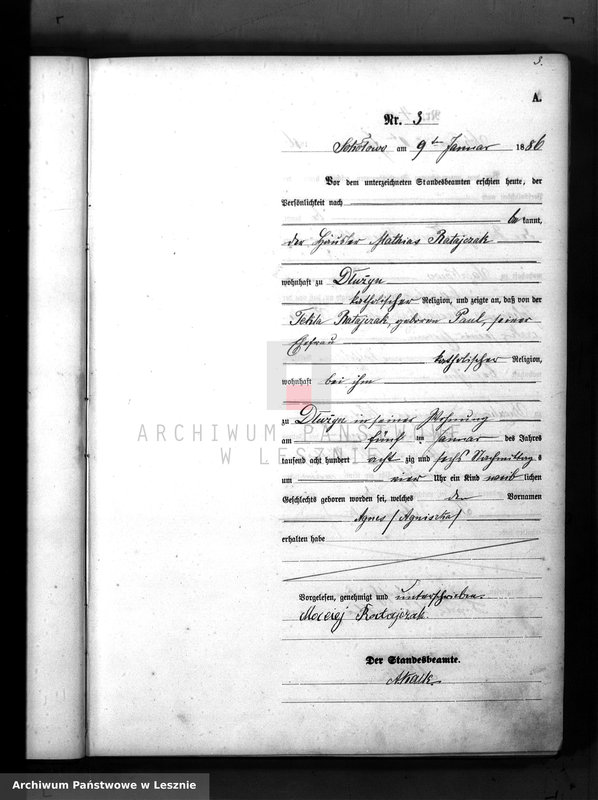 3.
A.
Nr. 3
am 9ten Januar 1886
Vor dem unterzeichneten Standesbeamten erschien heute, der
Persönlichkeit nach
bekannt,
der Häusler Mathias Ratajczak
wohnhaft zu Dluzyn
katholischer Religion, und zeigte an, daß von der
Tekla Ratajczak, geboren Paul, seiner
Ehefrau
katholischer Religion,
wohnhaft bei ihm
zu Dluzyn in seiner Wohnung
am fünf ten Januar des Jahres
tausend acht hundert acht zig und sechs Nachmittags
um vier Uhr ein Kind weib lichen
Geschlechts geboren worden sei, welches den Vornamen
Agnes (Agniszka)
erhalten habe
Vorgelesen, genehmigt und unterschrieben.
Maciej Ratajczak.
Der Standesbeamte.
ARCHIWUM PAŃSTWOWE
W LESZNIE
Archiwum Państwowe w Lesznie